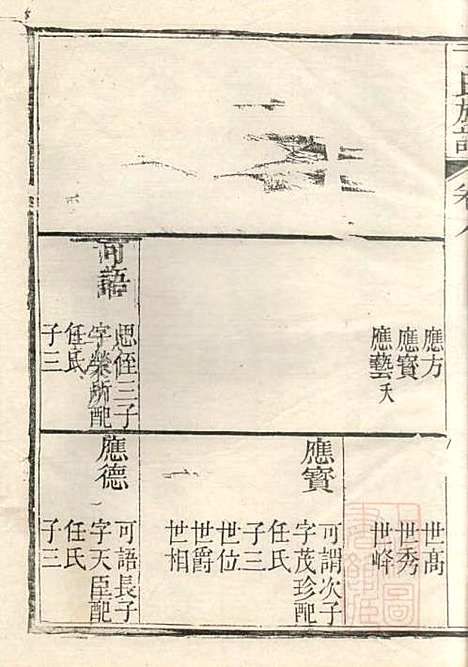 氏族譜
卷八
應方
應寳
應藝夭
可語
思侄三子
字榮所配
任氏
子三
世髙
世秀
世峰
應寳
可謂次子
字茂珍配
任氏
子三
世位
世爵
世相
應德
可語長子
字天臣配
任氏
子三